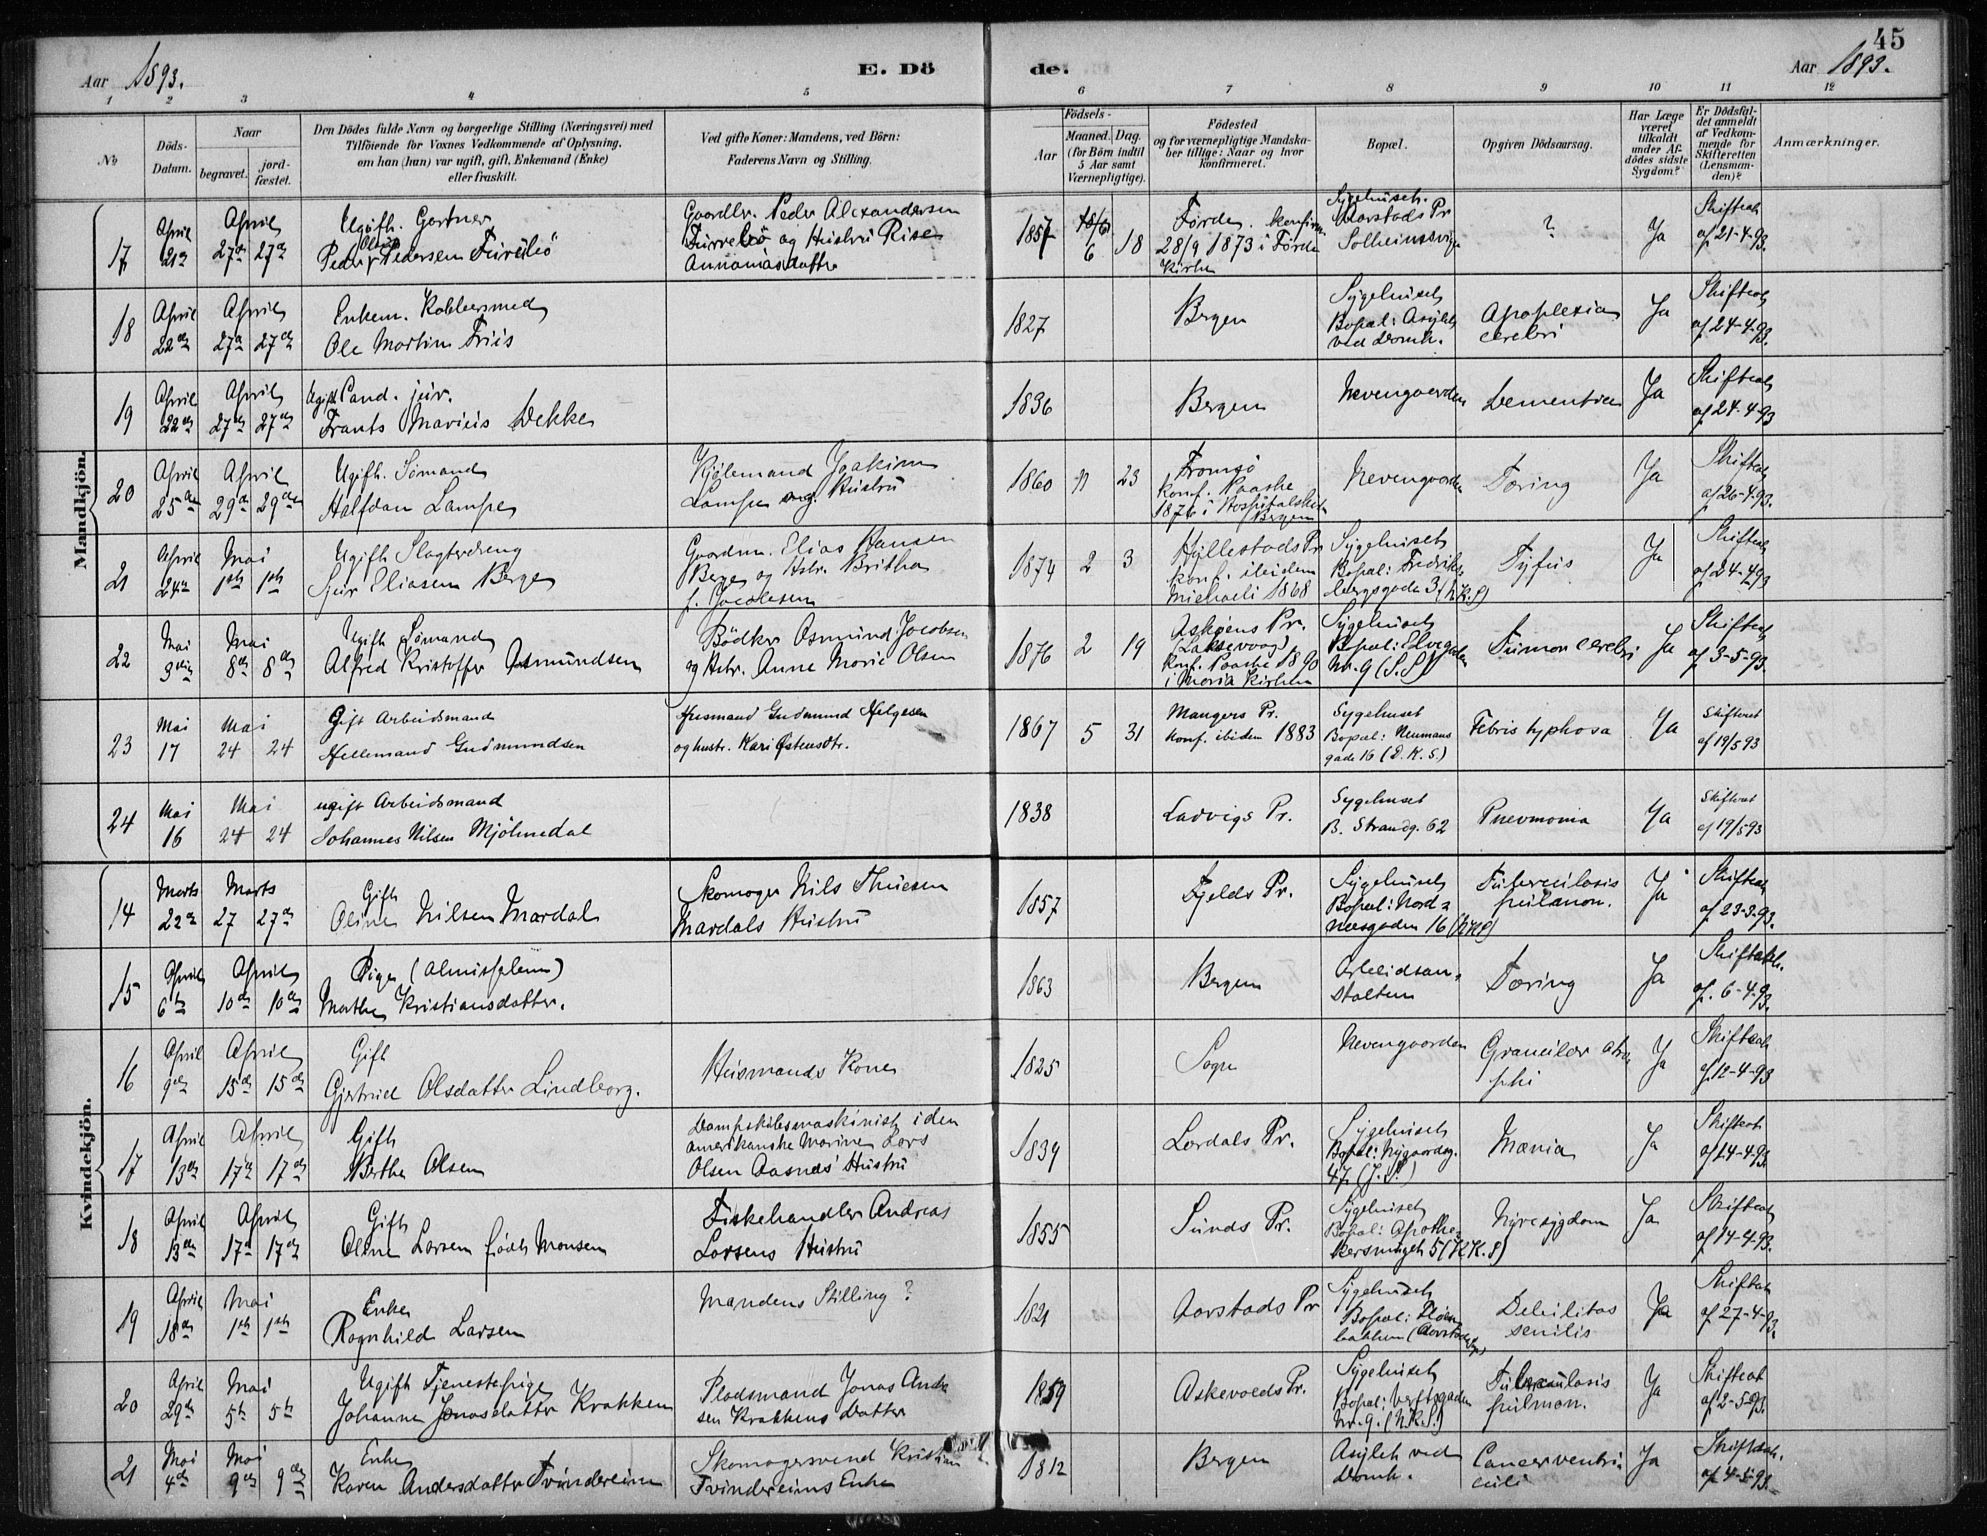 45
Aar 1893.
E. Dö de.
Aar 1893.
1 2 3 4 5 6 7 8 9 10 11 12
No
Döds-
Datum.
Naar
begravet.
jord-
fæstet.
Den Dödes fulde Navn og borgerlige Stilling (Næringsvei) med
Tilföiende for Voxnes Vedkommende af Oplysning,
om han (hun) var ugift, gift, Enkemand (Enke)
eller fraskilt.
Ved gifte Koner: Mandens, ved Börn:
Faderens Navn og Stilling.
Födsels-
Aar
Maaned. Dag.
(for Börn indtil
5 Aar samt
Værnepligtige).
Födested
og for værnepligtige Mandska-
ber tillige: Naar og hvor
konfirmeret.
Bopæl.
Opgiven Dödsaarsag.
Har Læge
været
tilkaldt
under Af-
dödes sidste
Sygdom?
Er Dödsfal-
det anmeldt
af Vedkom-
mende for
Skifteretten
(Lensman-
den)?
Anmærkninger.
Mandkjön.
17
April
21de
April
27de 27de
Ugift. Gartner
Peder Pedersen
Gaardbr. Peder Alexandersen
og Hustru
1857
6 18
Førde. konfirm.
28/9 1873 i Førde
Kirke
Sygehuset.
Aarstads Pr.
Solheimsvig
?
Ja
Skifteret
af 21-4-93.
18
April
22de
April
27de 27de
Enkem. Kobbersmed
Ole Martin Friis
1827
Bergen
Sygehuset
Bopæl: Asylet
ved Domk.
Apoplexia
cerebri
Ja
Skifteret
af 24-4-93.
19
April
22de
April
27de 27de
Ugift Cand. jur.
Frants Marius Dekke
1836
Bergen
Nevengaarden
Dementia
Ja
Skifteret
af 24-4-93
20
April
25de
April
29de 29de
Ugift. Sømand
Halfdan Lampe
Kjølemand Joakim
Lampe og Hustru
1860 11 23
Tromsø
Konf. Paaske
1876 i Hospitalskirken
Bergen
Nevengaarden
Tæring
Ja
Skifteret
af 26-4-93.
21
April
24de
Mai
1ste 1ste
Ugift Slagterdreng
Sjur Eliasen Berge
Gaardm. Elias Hansen
Berge og Hstr. Britha
f. Jacobsen
1874 2 3
Hyllestads Pr.
konf. ibidem
Michaeli 1868
Sygehuset
Bopæl: Fredriks-
bergsgade 3 (N.K.S)
Tyfus
Ja
Skifteret
af 24-4-93
22
Mai
3die
Mai
8de 8de
Ugift Sømand
Alfred Kristoffer Osmundsen
Bødker Osmund Jacobsen
og Hstr. Anne Marie Olsen
1876 2 19
Askøens Pr.
(Laksevaag)
Konf. Paaske 1890
i Maria Kirken
Sygehuset
Bopæl: Elvegaden
Nr. 9 (S.S)
Tumor cerebri
Ja
Skifteret
af 3-5-93.
23
Mai
17
Mai
24 24
Gift Arbeidsmand
Hellemand Gudmundsen
Husmand Gudmund Helgesen
og hustr. Kari Østensdtr.
1867 5 31
Mangers Pr.
Konf. ibiden 1883
Sygehuset
Bopæl: Neumans
gade 16 (D.K.S.)
Febris typhosa
Ja
Skifteret
af 19/5 93
24
Mai
16
Mai
24 24
ugift Arbeidsmand
Johannes Nilsen Mjöhndal
1838
Ladvigs Pr.
Sygehuset
B. Strandg. 62
Pnevmonia
Ja
Skifteret
af 19/5 93
Kvindekjön.
14
Marts
22de
Marts
27 27de
Gift
Oline Nilsen Mardal
Skomager Nils Thuesen
Mardals Hustru
1857
Fjelds Pr.
Sygehuset
Bopæl: Nord-
næsgaden 16 (NKS)
Tuberculosis
pulmon.
Ja
Skifteret
af 23-3-93.
15
April
6te
April
10de 10de
Pige (Almisselem)
Marthe Kristiansdatter.
1863
Bergen
Arbeidsan-
stalten
Tæring
Ja
Skifteret.
af. 6-4-93.
16
April
9de
April
15de 15de
Gift
Gjertrud Olsdatter Lindborg.
Husmands Kone
1825
Sogn
Nevengaarden
Granulær atro
phi
Ja
Skifteret
af 12-4-93
17
April
13de
April
17de 17de
Gift
Berthe Olsen
Dampskibsmaskinist i den
amerikanske Marine Lars
Olsen Aasnes' Hustru
1839
Lærdals Pr.
Sygehuset
Bopæl: Nygaardsg.
47 (J.S.)
Mania
Ja
Skifteret
af 14-4-93.
18
April
13de
April
17de 17de
Gift
Oline Larsen født Monsen
Fiskehandler Andreas
Larsens Hustru
1855
Sunds Pr.
Sygehuset
Bopæl: Apothe-
kersmuget 5 (KK.S)
Nyresygdom
Ja
Skifteret
af 14-4-93.
19
April
18de
Mai
1ste 1ste
Enke
Ragnhild Larsen
Mandens Stilling?
1821
Aarstads Pr
Sygehuset
Bopæl:
bakken
Debilitas
senilis
Ja
Skifteret
af 27-4-93.
20
April
29de
Mai
5te 5te
Ugift Tjenestepige
Johanne Jonasdatter Krakken
Pladsmand Jonas Andr
sen Krakkens Datter
1859
Askevolds Pr.
Sygehuset
Bopæl: Verftsgaden
Nr. 9. (N.K.S.)
Tuberculosis
pulmon.
Ja
Skifteret
af 2-5-93.
21
Mai
4de
Mai
9de 9de
Enke
Karen Andersdatter Tvindereim
Skomagersvend Kristian
Tvindereims Enke
1812
Bergen
Asylet ved
Domk.
Cancer ventri
culi
Ja
Skifteret.
af 4-5-93.